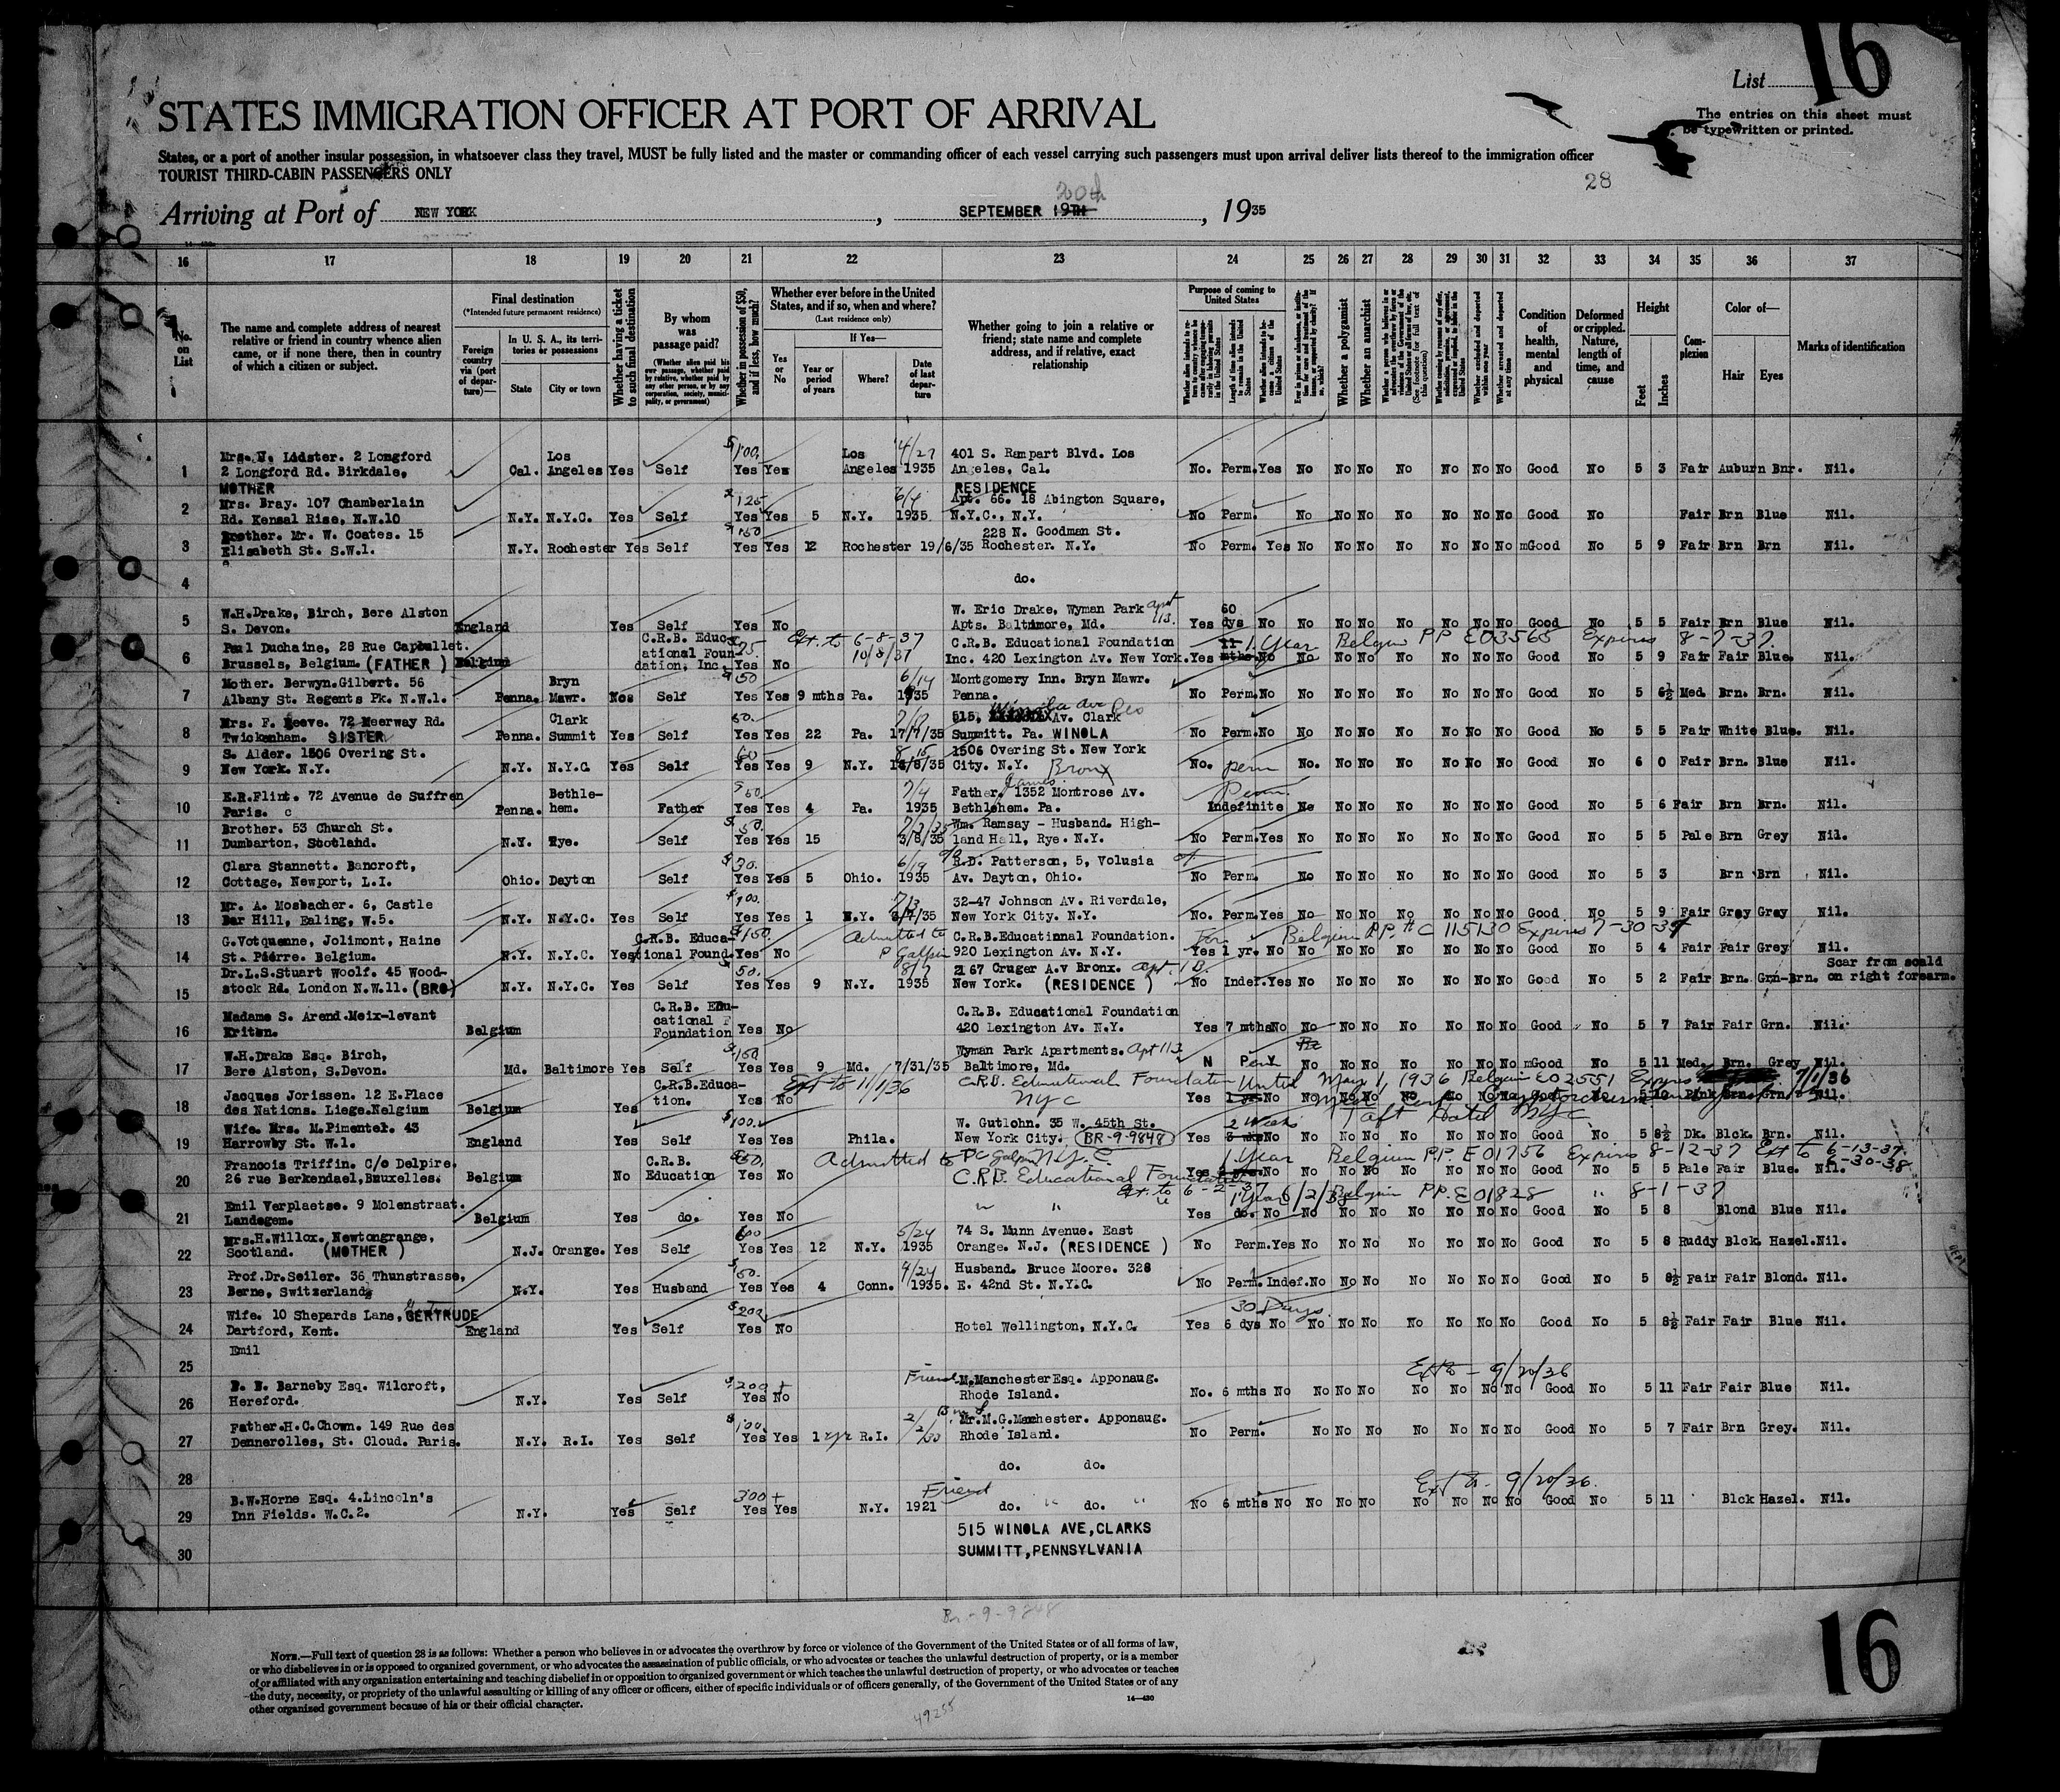 List 16
The entries on this sheet must
be typewritten or printed.
STATES IMMIGRATION OFFICER AT PORT OF ARRIVAL
States, or a port of another insular possession, in whatsoever class they travel, MUST be fully listed and the master or commanding officer of each vessel carrying such passengers must upon arrival deliver lists thereof to the immigration officer
TOURIST THIRD-CABIN PASSENGERS ONLY
28
20th
Arriving at Port of NEW YORK , SEPTEMBER 19TH , 1935
16 17 18 19 20 21 22 23 24 25 26 27 28 29 30 31 32 33 34 35 36 37
No. on List
The name and complete address of nearest relative or friend in country whence alien came, or if none there, then in country of which a citizen or subject.
Final destination
(*Intended future permanent residence)
Foreign country via (port of departure)—
In U. S. A., its territories or possessions
State
City or town
Whether having a ticket to such final destination
By whom was passage paid?
(Whether alien paid his own passage, whether paid by relative, whether paid by any other person, or by any corporation, society, municipality, or government)
Whether in possession of $50, and if less, how much?
Whether ever before in the United States, and if so, when and where?
(Last residence only)
Yes or No
If Yes—
Year or period of years
Where?
Date of last departure
Whether going to join a relative or friend; state name and complete address, and if relative, exact relationship
Purpose of coming to United States
Whether a polygamist
Whether an anarchist
Condition of health, mental and physical
Deformed or crippled. Nature, length of time, and cause
Height
Feet
Inches
Complexion
Color of—
Hair
Eyes
Marks of identification
1 Mrs. N. Lidster. 2 Longford
2 Longford Rd. Birkdale, Cal. Los Angeles Yes Self $100. Yes Yes Los Angeles 4/27 1935 401 S. Rampart Blvd. Los Angeles, Cal. No. Perm. Yes No No No No No No No Good No 5 3 Fair Auburn Bnr. Nil.
MOTHER
RESIDENCE
2 Mrs. Bray. 107 Chamberlain
Rd. Kensal Rise, N.W.10 N.Y. N.Y.C. Yes Self $125 Yes Yes 5 N.Y. 1935 Apt. 66. 18 Abington Square, N.Y.C., N.Y. No Perm. No No No No No No No Good No Fair Brn Blue Nil.
3 Brother. Mr. W. Coates. 15
Elisabeth St. S.W.1. N.Y. Rochester Yes Self $150 Yes Yes 12 Rochester 19/6/35 228 N. Goodman St. Rochester. N.Y. No Perm. Yes No No No No No No No mGood No 5 9 Fair Brn Brn Nil.
4 do.
5 W.H.Drake, Birch, Bere Alston
S. Devon. England Yes Self Yes No W. Eric Drake, Wyman Park Apt 113. Apts. Baltimore, Md. Yes 60 dys No No No No No No No No Good No 5 5 Fair Brn Blue Nil.
6 Paul Duchaine, 28 Rue Capouillet.
Brussels, Belgium. (FATHER) Belgium C.R.B. Educational Foundation, Inc. Yes No Ext. to 6-8-37 10/8/37 C.R.B. Educational Foundation Inc. 420 Lexington Av. New York. Yes 11 mths No No No No No No No No Good No 5 9 Fair Fair Blue. Nil.
1 Year Belgian PP E03565 Expires 8-7-37.
7 Mother. Berwyn.Gilbert. 56
Albany St. Regents Pk. N.W.1. Penna. Bryn Mawr. Nos Self $50 Yes Yes 9 mths Pa. 6/14 1935 Montgomery Inn. Bryn Mawr. Penna. No Perm. No No No No No No No No Good No 5 6½ Med. Brn. Brn. Nil.
8 Mrs. F. Reeve. 72 Meerway Rd.
Twickenham. SISTER Penna. Clark Summit Yes Self 60. Yes Yes 22 Pa. 17/7/35 515, Winola Ave Av. Clark Summitt. Pa. WINOLA No Perm. No No No No No No No No Good No 5 5 Fair White Blue. Nil.
9 S. Alder. 1506 Overing St.
New York. N.Y. N.Y. N.Y.C. Yes Self 60 Yes Yes 9 N.Y. 1506 Overing St. New York City. N.Y. Bronx No. perm No. No No No No No No Good No 6 0 Fair Brn. Blue Nil.
10 E.R.Flint. 72 Avenue de Suffren
Paris. Penna. Bethlehem. Father $50. Yes Yes 4 Pa. 7/4 1935 Father. James. 1352 Montrose Av. Bethlehem. Pa. Perm. Indefinite No No No No No No No Good No 5 6 Fair Brn Brn. Nil.
11 Brother. 53 Church St.
Dumbarton, Scotland. N.Y. Rye. Self $50. Yes Yes 15 3/8/35 Wm. Ramsay - Husband. Highland Hall, Rye. N.Y. No Perm. Yes No No No No No No No Good No 5 5 Pale Brn Grey Nil.
12 Clara Stannett. Bancroft,
Cottage, Newport, L.I. Ohio. Dayton Self $30. Yes Yes 5 Ohio. 6/19 1935 R.D. Patterson, 5, Volusia Av. Dayton, Ohio. No Perm. No No No No No No No Good No 5 3 Brn Brn Nil.
13 Mr. A. Mosbacher. 6, Castle
Bar Hill, Ealing, W.5. N.Y. N.Y.C. Yes Self $100. Yes Yes 1 N.Y. 32-47 Johnson Av. Riverdale, New York City. N.Y. No. Perm. Yes No No No No No No No Good No 5 9 Fair Grey Grey Nil.
14 G.Votquenne, Jolimont, Haine
St. Pierre. Belgium. N.Y. N.Y.C. Yes C.R.B. Educational Found. $150. Yes No Admitted to P Galpin C.R.B.Educational Foundation. 920 Lexington Av. N.Y. Yes 1 yr. No No No No No No No No Good No 5 4 Fair Fair Grey Nil.
For Belgian P.P. # C 115130 Expires 7-30-37
15 Dr.L.S.Stuart Woolf. 45 Woodstock Rd. London N.W.11. (BRO) N.Y. N.Y.C. Yes Self 50. Yes Yes 9 N.Y. 8/7 1935 2167 Cruger A.v Bronx. apt. 1 B. New York. (RESIDENCE) No Indef. Yes No No No No No No No Good No 5 2 Fair Brn. Grn-Brn. Scar from scald on right forearm.
16 Madame S. Arend.Meix-levant
Kriten. Belgium C.R.B. Educational Foundation Yes No C.R.B. Educational Foundation 420 Lexington Av. N.Y. Yes 7 mths No No No No No No No No Good No 5 7 Fair Fair Grn. Nil.
17 W.H.Drake Esq. Birch,
Bere Alston, S.Devon. Md. Baltimore Yes Self $150 Yes Yes 9 Md. 7/31/35 Wyman Park Apartments. Apt 113 Baltimore, Md. N No No No No No No No mGood No 5 11 Med. Brn. Grey Nil.
18 Jacques Jorissen. 12 E.Place
des Nations. Liege.Nelgium Belgium Yes C.R.B.Education. Yes No Ext to 11/1/36 C.R.B. Educational Foundation NYC Yes No No
Until May 1, 1936 Belgian E02551 Expires 7/1/36
19 Wife. Mrs. M.Pimentel. 43
Harrowby St. W.1. England Yes Self $100. Yes Yes Phila. W. Gutlohn. 35 W. 45th St. New York City. (BR-9-9848) Yes 2 Weeks No No No No No No No No Good No 5 8½ Dk. Blck. Brn. Nil.
Taft Hotel NYC
20 Francois Triffin. C/o Delpire.
26 rue Berkendael,Bruxelles. Belgium No C.R.B. Education $50. Yes No Admitted to PC Galpin N.Y.C. C.R.B. Educational Foundation Yes No No No No No No No No Good No 5 5 Pale Fair Blue. Nil.
1 Year Belgian P.P. E01756 Expires 8-12-37 Ext to 6-13-37 6-30-38
21 Emil Verplaetse. 9 Molenstraat.
Landegem. Belgium Yes do. Yes No Ext. to 6-2-37 " " Yes do. No No No No No No No No Good No 5 8 Blond Blue Nil.
1 Year Belgian P.P. E01828 " 8-1-37
22 Mrs.H.Willox. Newtongrange,
Scotland. (MOTHER) N.J. Orange. Yes Self Yes Yes 12 N.Y. 5/24 1935 74 S. Munn Avenue. East Orange. N.J. (RESIDENCE) No Perm. Yes No No No No No No No Good No 5 8 Ruddy Blck Hazel. Nil.
23 Prof.Dr.Seiler. 36 Thunstrasse,
Berne, Switzerland N.Y. Yes Husband $50. Yes Yes 4 Conn. 4/24 1935. Husband. Bruce Moore. 328 E. 42nd St. N.Y.C. No Perm. Indef. No No No No No No No Good No 5 8½ Fair Fair Blond. Nil.
24 Wife. 10 Shepards Lane, GERTRUDE
Dartford, Kent. England Yes Self $200 Yes No Hotel Wellington, N.Y.C. Yes 30 Days. 6 dys No No No No No No No No Good No 5 8½ Fair Fair Blue Nil.
Emil
25
26 B. B. Barneby Esq. Wilcroft,
Hereford. N.Y. Yes Self $200+ Yes No Friend M.Manchester Esq. Apponaug. Rhode Island. No. 6 mths No No No No No No No No Good No 5 11 Fair Fair Blue Nil.
Ext to - 9/20/36
27 Father.H.C.Chown. 149 Rue des
Dennerolles, St. Cloud. Paris. N.Y. R.I. Yes Self $100. Yes Yes R.I. Mr.M.G.Manchester. Apponaug. Rhode Island. No Perm. No No No No No No No Good No 5 7 Fair Brn Grey. Nil.
28 do. do.
Ext to. 9/20/36.
29 B.W.Horne Esq. 4.Lincoln's
Inn Fields. W.C.2. N.Y. Yes Self 300+ Yes Yes N.Y. 1921 Friend do. " do. " No 6 mths No No No No No No No No Good No 5 11 Blck Hazel. Nil.
30 515 WINOLA AVE,CLARKS
SUMMITT,PENNSYLVANIA
Br-9-9848
NOTE.—Full text of question 28 is as follows: Whether a person who believes in or advocates the overthrow by force or violence of the Government of the United States or of all forms of law,
or who disbelieves in or is opposed to organized government, or who advocates the assassination of public officials, or who advocates or teaches the unlawful destruction of property, or is a member
of or affiliated with any organization entertaining and teaching disbelief in or opposition to organized government or which teaches the unlawful destruction of property, or who advocates or teaches
the duty, necessity, or propriety of the unlawful assaulting or killing of any officer or officers, either of specific individuals or of officers generally, of the Government of the United States or of any
other organized government because of his or their official character.
14—430
49255
16